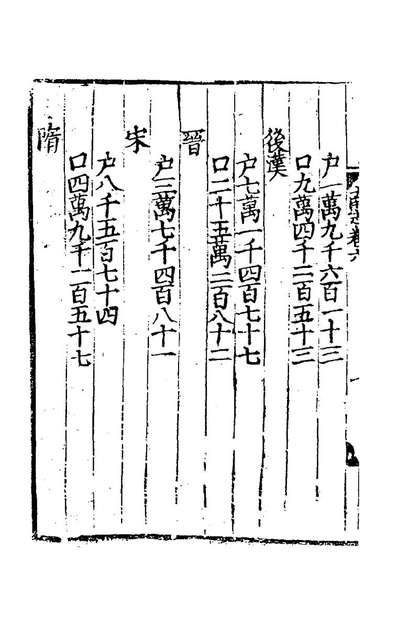 卷六
户一萬九千六百一十三
口九萬四千二百五十三
後漢
户七萬一千四百七十七
口二十五萬二百八十二
晉
户三萬七千四百八十一
宋
户八千五百七十四
口四萬九千二百五十七
隋